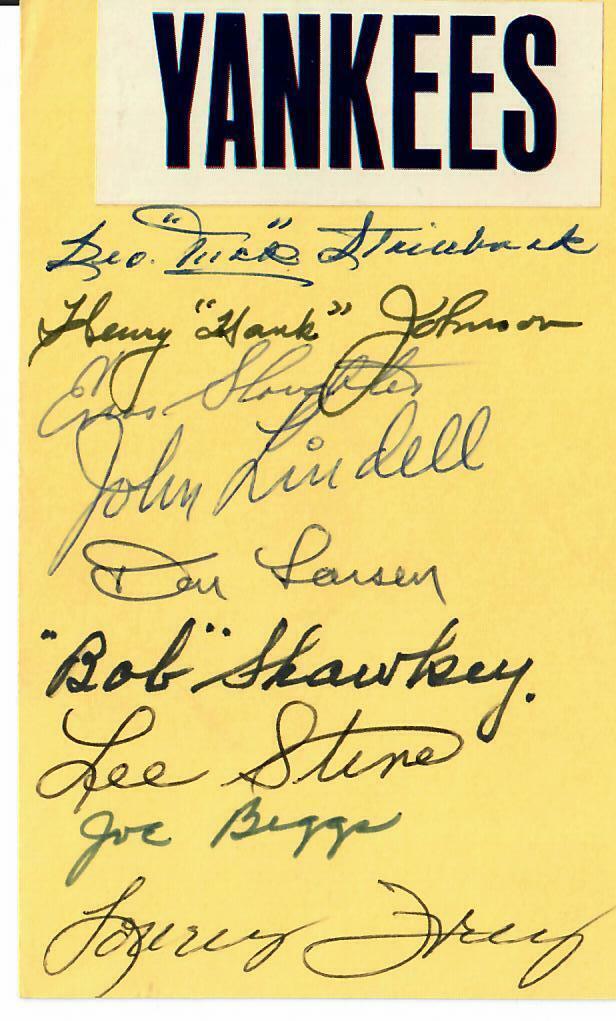 YANKEES
Geo. "Tuck" Stainback
Henry "Hank" Johnson
Enos Slaughter
John Lindell
Don Larsen
"Bob" Shawkey.
Lee Stine
Joe Beggs
Lonny Frey